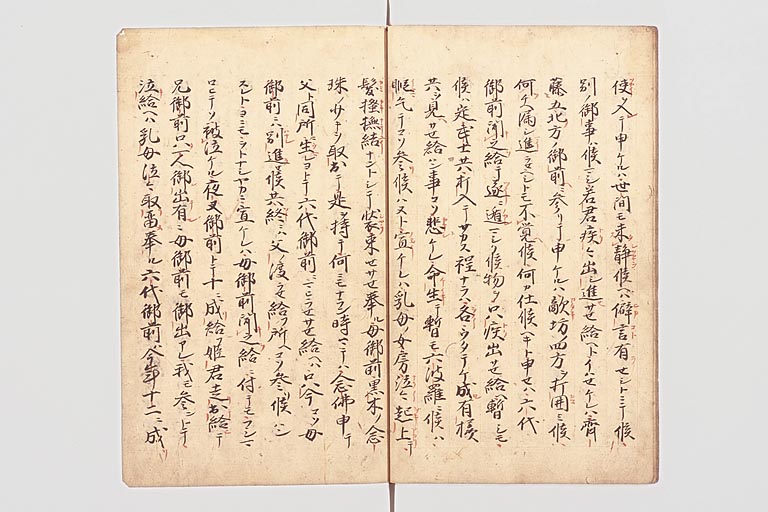 使ヲ入テ申ケルハ世間モ未静候ヘハ僻言有セントミテ候
別御事ハ候ハシ若君疾々出シ進サセ給ヘトイハセケレハ齊
藤五北方ノ御前ニ参リテ申ケルハ敵坊四方ヲ打囲ミ候
何チヘ漏シ進セヘシトモ不覚候何カ仕候ヘキト申セハ六代
御前聞之給テ遂ニ遁マシク候物ヲ只疾出サセ給ヘ暫シモ
候ハ定武士共ハ打入テサカス程ナラハ各ウタテケ成有様
共ヲ見サセ給ハン事コソ悲ケレ命生テ暫モ六波羅ニ候ハ
暇乞テマツ参候ハスト宣ケレハ乳母ノ女房泣々起上テ
髪掻撫結ナントシテ装束セサセ奉ル母御前黒木ノ念
珠ノ取出テ是ヲ持テ何ニモナラン時マテハ念佛申テ
父ト同所生ヨトテ六代御前ニトラセサセ給ヘハ只今コソ母
御前ニハ別進候共終ニハ父ノ渡セ給フ所ヘコソ参候ハン
スレトヨニモヲトナシヤカニ宣ケレハ母御前聞之給ニ付テモ
ロヒテソ被泣ケル夜叉御前トテ十ニ成給フ姫君走出給テ
兄御前只一人御出有ニ母御前モ御出アレ我モ参ントテ
泣給ヘハ乳母泣々取留奉ル六代御前ハ今年十二ニ成